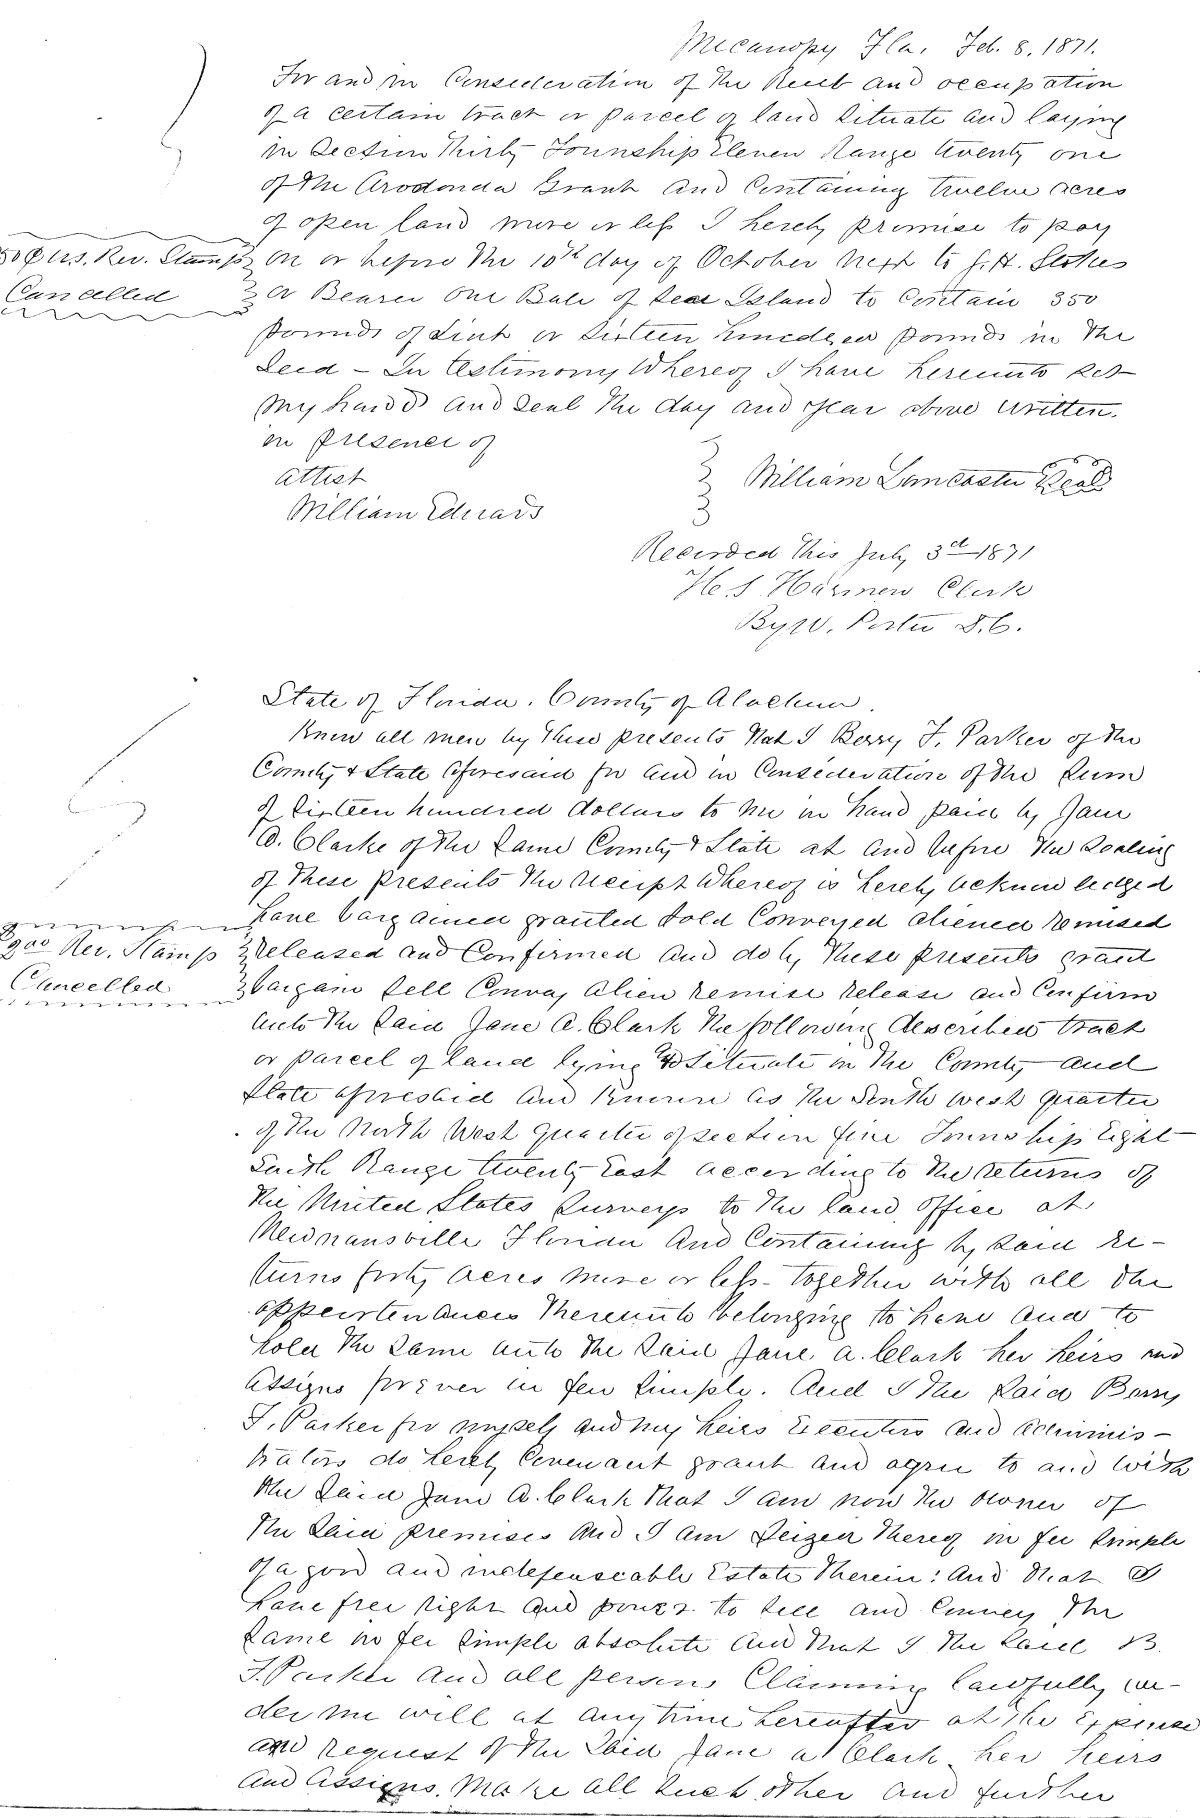 Micanopy Fla. Feb. 8. 1871.
For and in Consideration of the Rent and occupation
of a certain tract or parcel of land Situate and laying
in Section Thirty Township Eleven Range twenty one
of the Arodonda Grant and Containing twelve acres
of open land more or less I hereby promise to pay
50 Cts. Rev. Stamp on or before the 10th day of October next to J. H. Stokes
Cancelled or Bearer One Bale of Sea Island to Contain 350
pounds of Lint or Sixteen hundred pounds in the
Seed - In testimony Whereof I have hereunto set
my hand and Seal the day and year above written.
in presence of
attest
William Lancaster Seal
William Edwards
Recorded this July 3d 1871
H. S. Harmon Clerk
By W. Porter D.C.
State of Florida. County of Alachua.
Know all men by these presents that I Berry F. Parker of the
County & State aforesaid for and in Consideration of the Sum
of Sixteen hundred dollars to me in hand paid by Jane
A. Clarke of the Same County & State at and before the Sealing
of these presents the receipt whereof is hereby acknowledged
have bargained granted sold Conveyed aliened remised
$2.00 Rev. Stamp released and Confirmed and do by these presents grant
Cancelled bargain Sell Convey Alien remise release and Confirm
unto the Said Jane A. Clark the following described tract
or parcel of land lying & Situate in the County and
State aforesaid and Known as the South west quarter
of the North West quarter of section five Township Eight
South Range twenty East according to the returns of
the United States Surveys to the land office at
Newnansville Florida And Containing by said re-
turns forty acres more or less together with all the
appurtenances thereunto belonging to have and to
hold the Same unto the Said Jane A. Clark her heirs and
assigns forever in fee Simple. And I the Said Berry
F. Parker for myself and my heirs Executors and adminis-
trators do hereby Covenant grant and agree to and with
the Said Jane A. Clark that I am now the owner of
the Said premises and I am Seized thereof in fee Simple
of a good and indefeaseable Estate therein: And that I
have free right and power to sell and Convey the
Same in fee Simple absolute and that I the Said B.
F. Parker and all persons Claiming lawfully un-
der me will at any time hereafter at the Expense
and request of the Said Jane A Clark her heirs
and assigns. Make all Such other and further